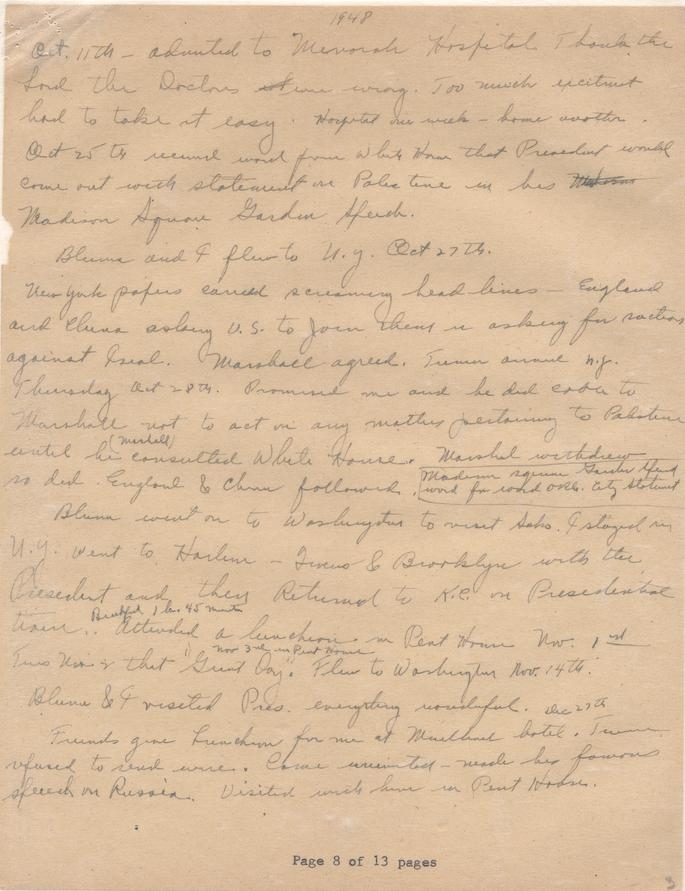 1948
Oct. 11th - admitted to Menorah Hospital Thank the
Lord the Doctors were wrong. Too much excitment
had to take it easy. Hospital one week - home another.
Oct 25th received word from White House that President would
come out with statement on Palestine in his
Madison Square Garden Speech.
Bluma and I flew to N.Y. Oct 27th.
New York papers carried screaming head lines - England
and China asking U.S. to join them in asking for
against Isral. Marshall agreed. Truman arrived N.Y.
Thursday Oct 28th. Promised me and he did cable to
Marshall not to act on any matter pertaining to Palestine
until he (Marshall) consulted White House. Marshal withdrew
so did England & China followed. Madison square Garden Speech
word for word Okla. City Statment
Bluma went on to Washington to visit I stayed in
N.Y. went to Harlem - & Brooklyn with the
President and they Returned to K.C. on Presidential
train. Breakfast 1 hr. 45 minutes Attended a luncheon in Pent House Nov. 1st
Tues Nov 2 that "Great Day". Nov 3rd in Pent House Flew to Washington Nov. 14th.
Bluma & I visited Pres. everything wonderful. Dec 27th
Friends give Luncheon for me at Muelbach hotel. Truman
refused to send wire. Came uninvited - made his famous
speech on Russia. Visited with him in Pent House.
Page 8 of 13 pages